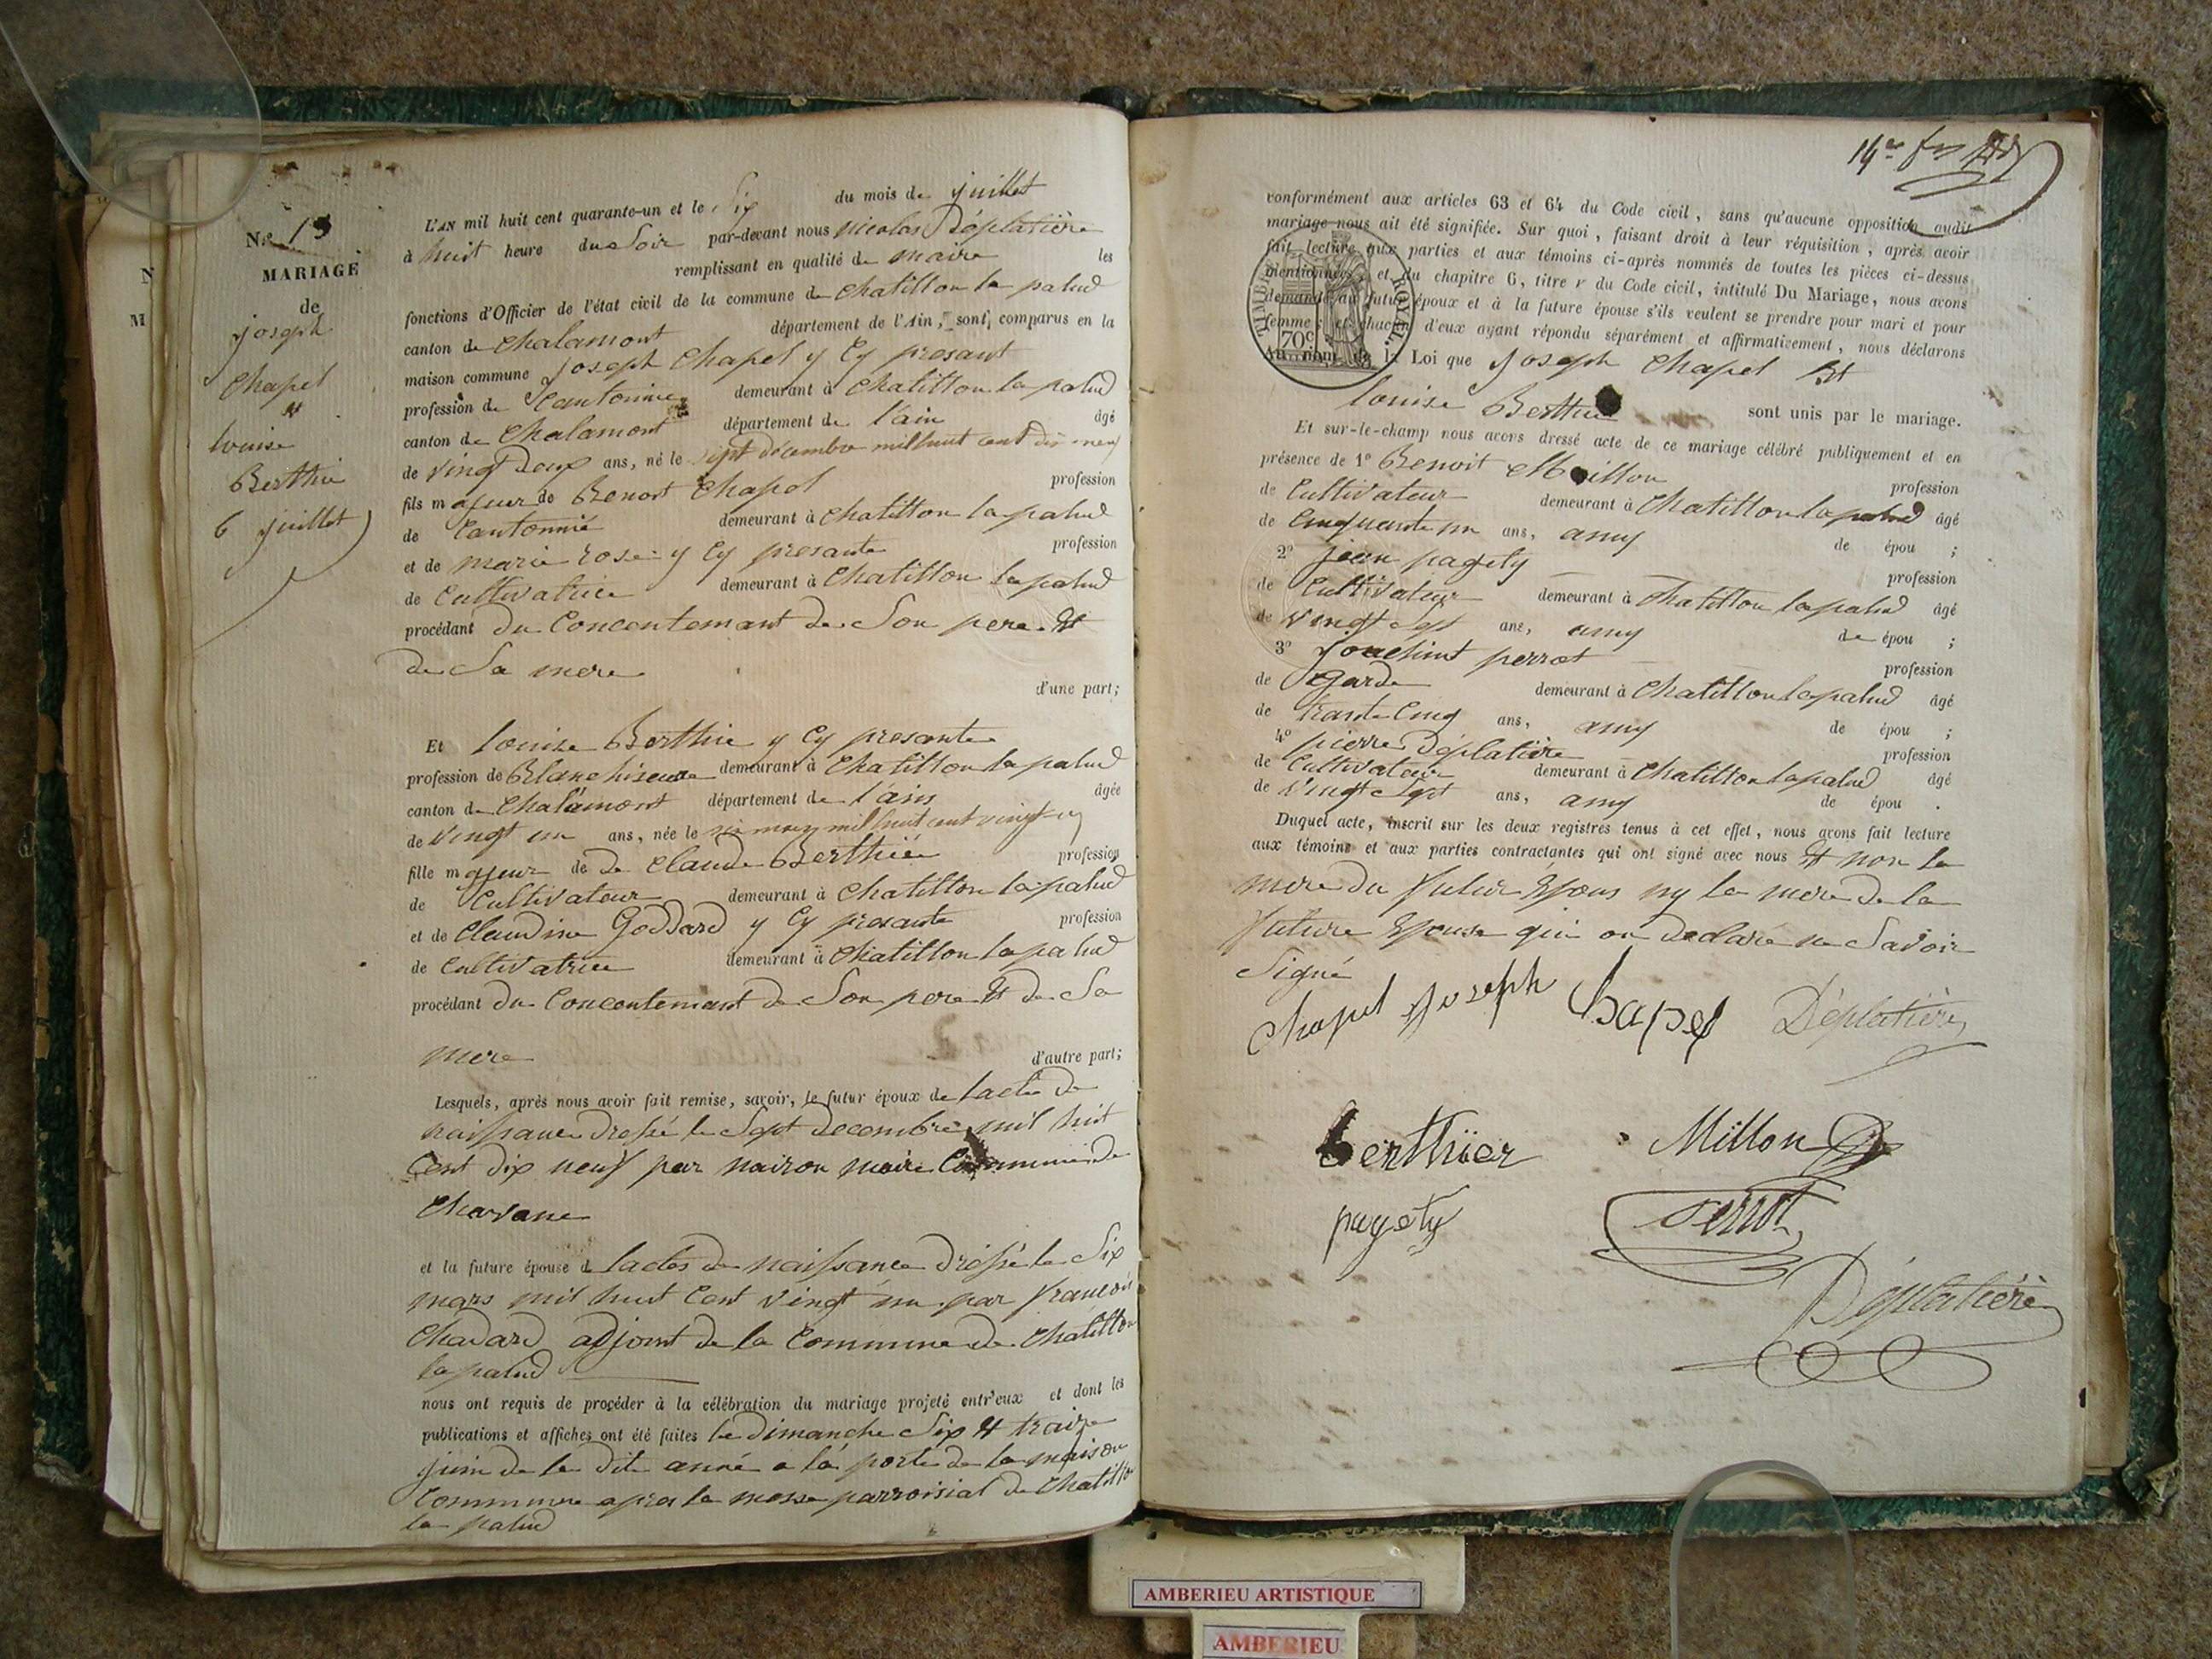 N
M
N.º 13
MARIAGE
de
joseph
Chapel
et
louise
Berthie
6 juillet
L'AN mil huit cent quarante-un et le Six du mois de juillet
à huit heure du Soir par-devant nous nicolas Déplatière
remplissant en qualité de maire les
fonctions d'Officier de l'état civil de la commune de Chatillon la palud
canton de Chalamont département de l'Ain, sont comparus en la
maison commune joseph Chapel y Cy presant
profession de Cantonnie demeurant à Chatillon la palud
canton de Chalamont département de l'ain âgé
de vingt Deux ans, né le Sept décembre mil huit cent dix neuf
fils majeur de Benoit Chapel profession
de Cantonnié demeurant à Chatillon la palud
et de marie Rose y Cy presante profession
de Cultivatrice demeurant à Chatillon la palud
procédant du Concentemant de Son pere Et
de Sa mere
d'une part;
Et louise Berthie y Cy presante
profession de Blanchiseuse demeurant à Chatillon la palud
canton de Chalamont département de l'ain âgée
de vingt un ans, née le six mars mil huit cent vingt un
fille majeur de de Claude Berthiée profession
de Cultivateur demeurant à Chatillon la palud
et de Claudine Goddard y Cy presante profession
de Cultivatrice demeurant à Chatillon la palud
procédant du Concentemant de Son pere Et de Sa
mere d'autre part;
Lesquels, après nous avoir fait remise, savoir, le futur époux de lacte de
naissance dressé le Sept decembre mil huit
Cent dix neuf par nairon maire Commune de
Charane
et la future épouse d lactes de naissance dréssé le Six
mars mil huit Cent vingt un par françois
Chadard adjoint de la Commune de Chatillon
la palud
nous ont requis de procéder à la célébration du mariage projeté entr'eux et dont les
publications et affiches ont été faites le dimanche Six Et traize
juin de la dite anné a la porte de la maison
Commune apres la messe parroisial de Chatillo
la palud
14me
conformément aux articles 63 et 64 du Code civil, sans qu'aucune opposition audit
mariage nous ait été signifiée. Sur quoi, faisant droit à leur réquisition, après avoir
fait lecture aux parties et aux témoins ci-après nommés de toutes les pièces ci-dessus
mentionnées, et du chapitre 6, titre v du Code civil, intitulé Du Mariage, nous avons
demandé au futur époux et à la future épouse s'ils veulent se prendre pour mari et pour
femme; et chacun d'eux ayant répondu séparément et affirmativement, nous déclarons
Au nom de la Loi que joseph Chapel Et
TIMBRE ROYAL.
70c
louise Berthie sont unis par le mariage.
Et sur-le-champ nous avons dressé acte de ce mariage célébré publiquement et en
présence de 1º Benoit Millon profession
de Cultivateur demeurant à Chatillon la palud âgé
de Cinquante un ans, amy de épou ;
2º jean pagety profession
de Cultivateur demeurant à Chatillon la palud âgé
de vingt Sept ans, amy de épou ;
3º perrot profession
de Garde demeurant à Chatillon la palud âgé
de trante Cinq ans, amy de épou ;
4º pierre Déplatière profession
de Cultivateur demeurant à Chatillon la palud âgé
de vingt Sept ans, amy de épou .
Duquel acte, inscrit sur les deux registres tenus à cet effet, nous avons fait lecture
aux témoins et aux parties contractantes qui ont signé avec nous Et non la
mere du futur Epous ny la mere de la
future Epouse qui on declaré ne Savoir
Signé
Chapel joseph Chapel Déplatière
berthier Millon
pagety Perrot
Déplatière
AMBERIEU ARTISTIQUE
AMBERIEU